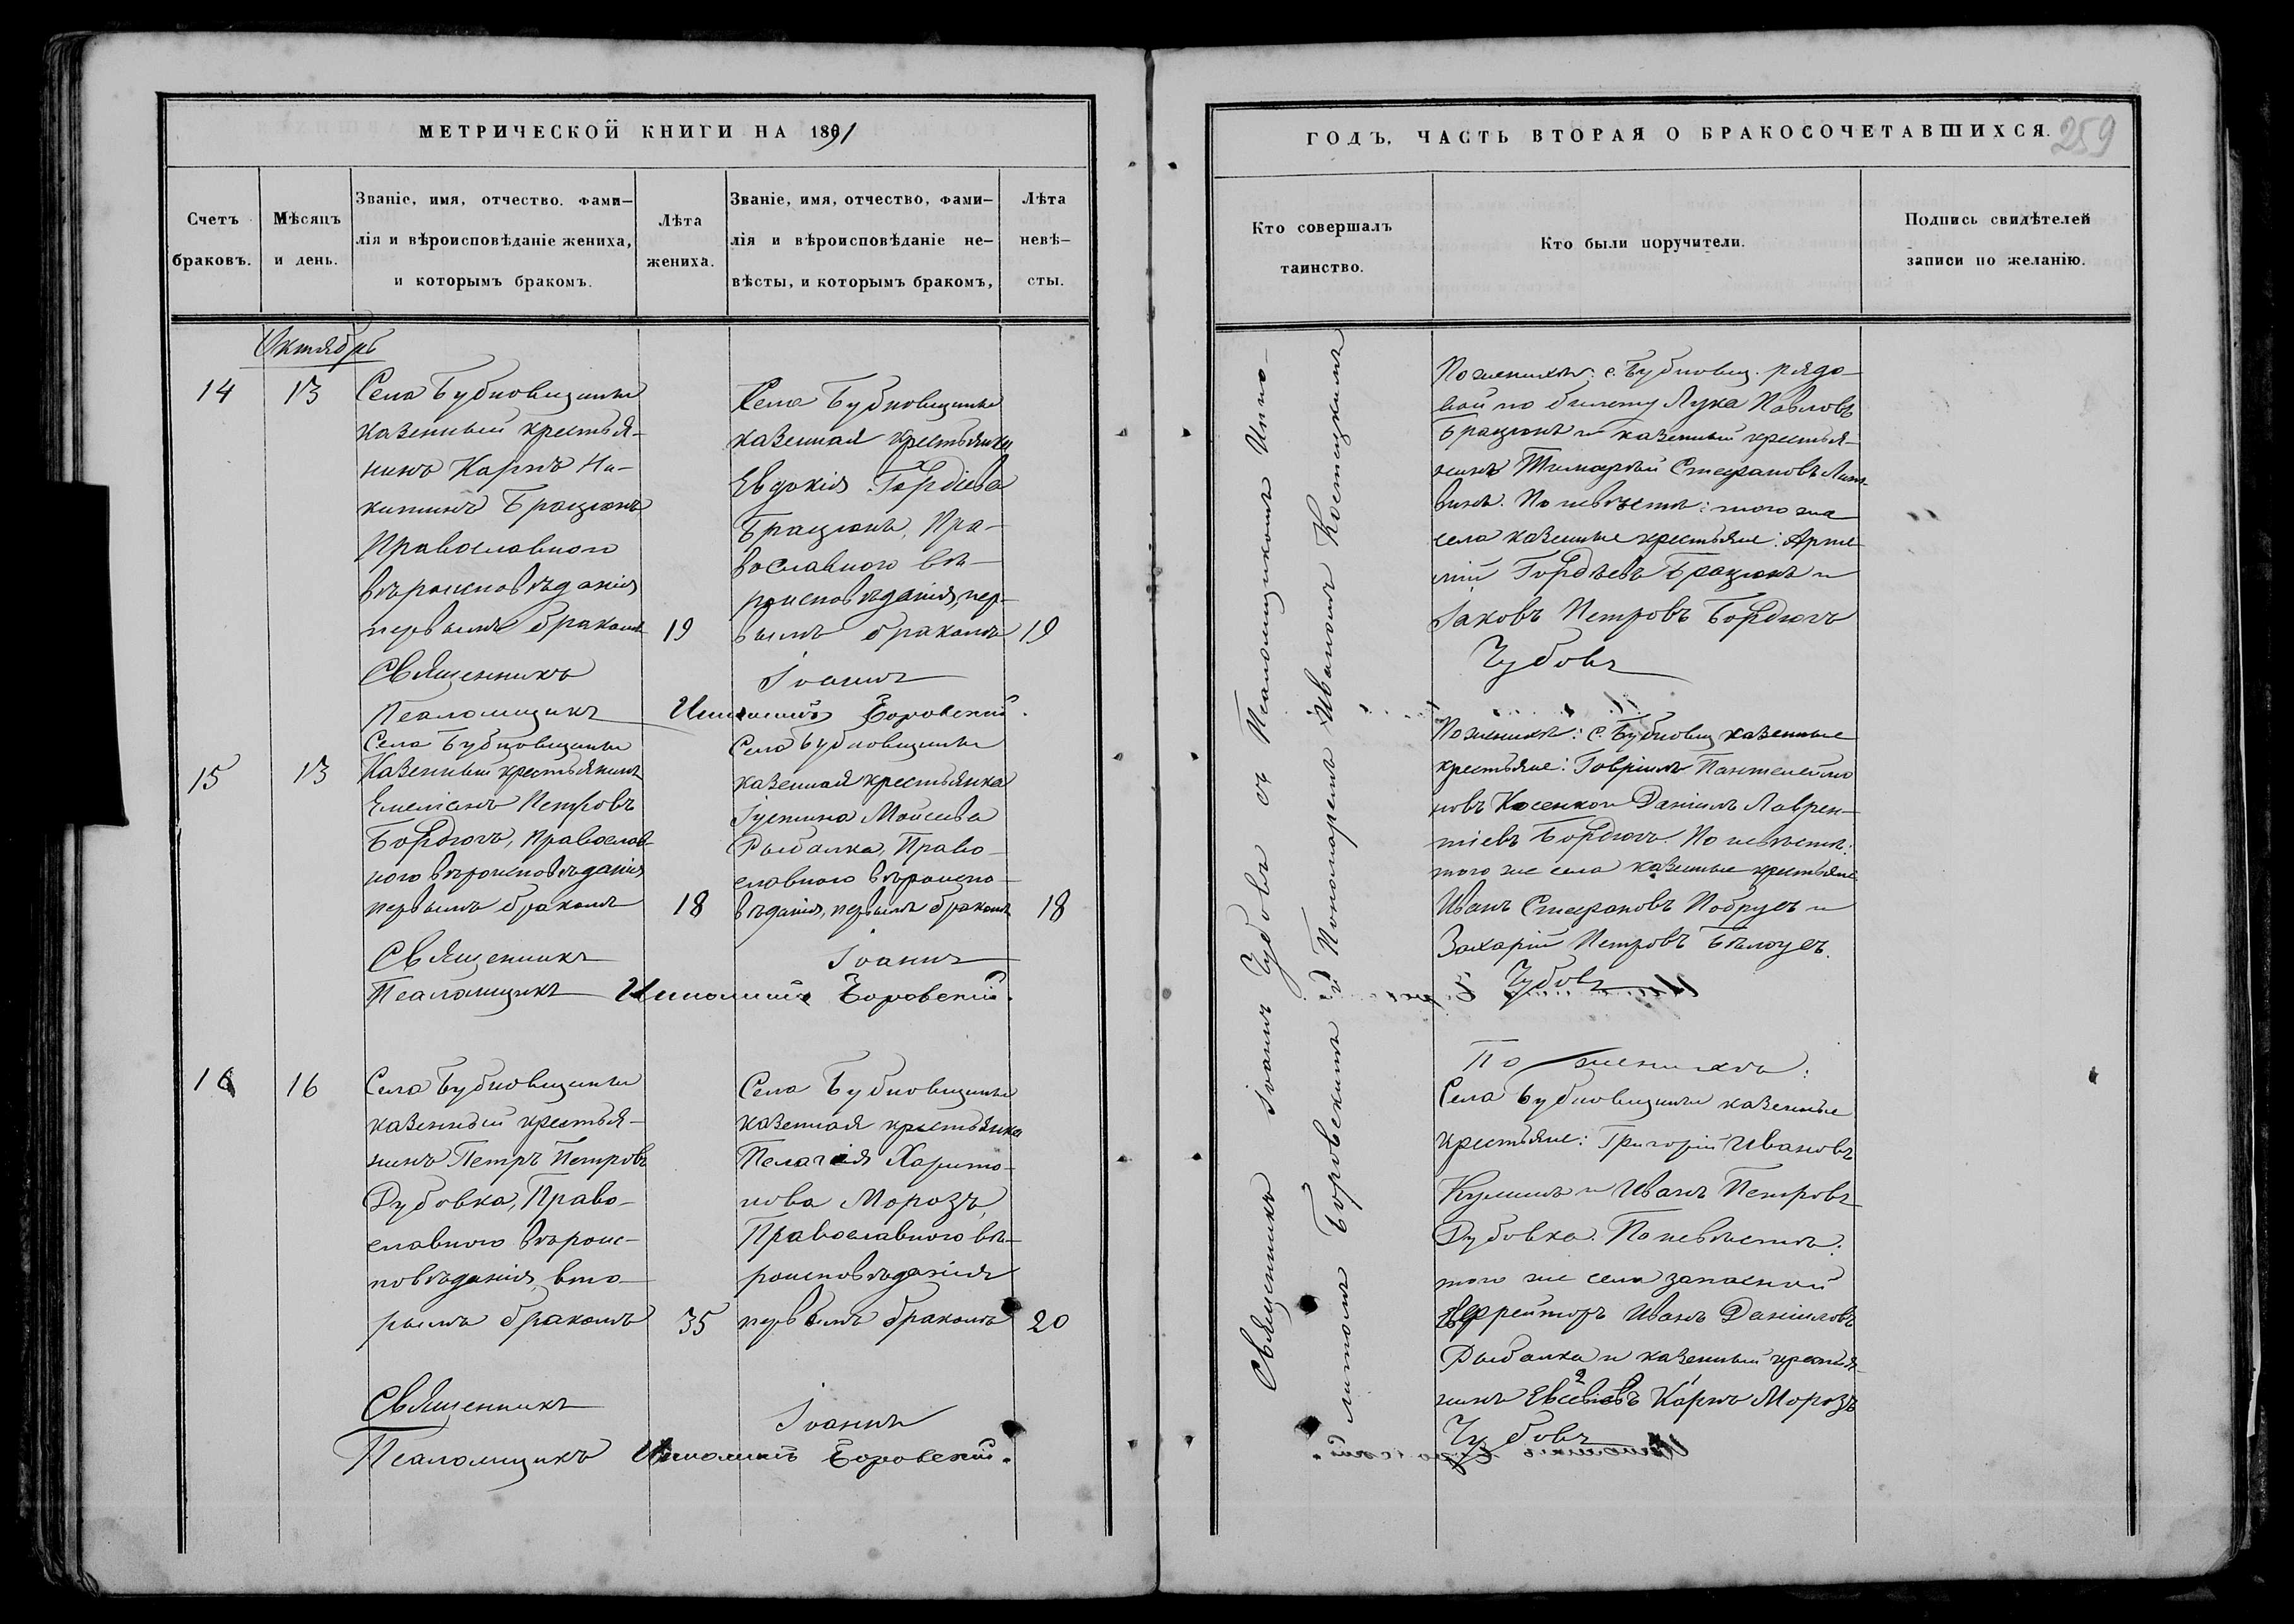 МЕТРИЧЕСКОЙ КНИГИ НА 1891
Счетъ браковъ.
Мѣсяцъ и день.
Званіе, имя, отчество. фами-
лія и вѣроисповѣданіе жениха,
и которымъ бракомъ.
Лѣта
жениха.
Званіе, имя, отчество, фами-
лія и вѣроисповѣданіе не-
вѣсты, и которымъ бракомъ,
Лѣта
невѣ-
сты.
Октябрь
14
13
Села Бубновщины
казенный крестья-
нинъ Карпъ Ни-
китинъ Брацюнъ
Православнаго
вѣроисповѣданія
первымъ бракомъ
19
Села Бубновщины
казенная крестьянка
Евдокія Гордіева
Брацюнъ, Пра-
вославнаго вѣ-
роисповѣданія, пер-
вымъ бракомъ
19
Священникъ Іоаннъ Чубовъ
Псаломщикъ Ипполитъ Боровскій.
15
13
Села Бубновщины
Казенный крестьянинъ
Емеліанъ Петровъ
Бордюгъ, Православ-
наго вѣроисповѣданія
первымъ бракомъ
18
Села Бубновщины
казенная крестьянка
Іустина Моисеева
Рыбалка, Право-
славнаго вѣроиспо-
вѣданія, первымъ бракомъ
18
Священникъ Іоаннъ Чубовъ
Псаломщикъ Ипполитъ Боровскій.
16
16
Села Бубновщины
казенный крестья-
нинъ Петръ Петровъ
Дубовка, Право-
славнаго вѣроис-
повѣданія, вто-
рымъ бракомъ
35
Села Бубновщины
казенная крестьянка
Пелагія Харито-
нова Морозъ,
Православнаго вѣ-
роисповѣданія
первымъ бракомъ
20
Священникъ Іоаннъ Чубовъ
Псаломщикъ Ипполитъ Боровскій.
259
ГОДЪ, ЧАСТЬ ВТОРАЯ О БРАКОСОЧЕТАВШИХСЯ.
Кто совершалъ
таинство.
Кто были поручители.
Подпись свидѣтелей
записи по желанію.
Священникъ Іоаннъ Чубовъ съ Псаломщикомъ Иппо-
литомъ Боровскимъ и Пономаремъ Иваномъ Костецкимъ
По женихѣ: с. Бубновщ. рядо-
вой по билету Лука Павловъ
Брацюнъ и казенный крестья-
нинъ Тимофей Стефановъ Лит-
винъ. По невѣстѣ: того же
села казенные крестьяне: Арте-
мій Гордѣевъ Брацюнъ и
Іаковъ Петровъ Бордюгъ
По женихѣ: с. Бубновщ казенные
крестьяне: Гавріилъ Пантелеймо
новъ Косенко и Даніилъ Лаврен-
тіевъ Бордюгъ. По невѣстѣ:
того же села казенные крестьяне
Иванъ Стефановъ Побрусъ и
Захарій Петровъ Бѣлоусъ.
По женихѣ:
Села Бубновщины казенные
крестьяне: Григорій Ивановъ
и Иванъ Петровъ
Дубовка. По невѣстѣ:
того же села запасной
Ефрейторъ Иванъ Даніиловъ
Рыбалка и казенный крестья-
нинъ Карпъ Морозъ